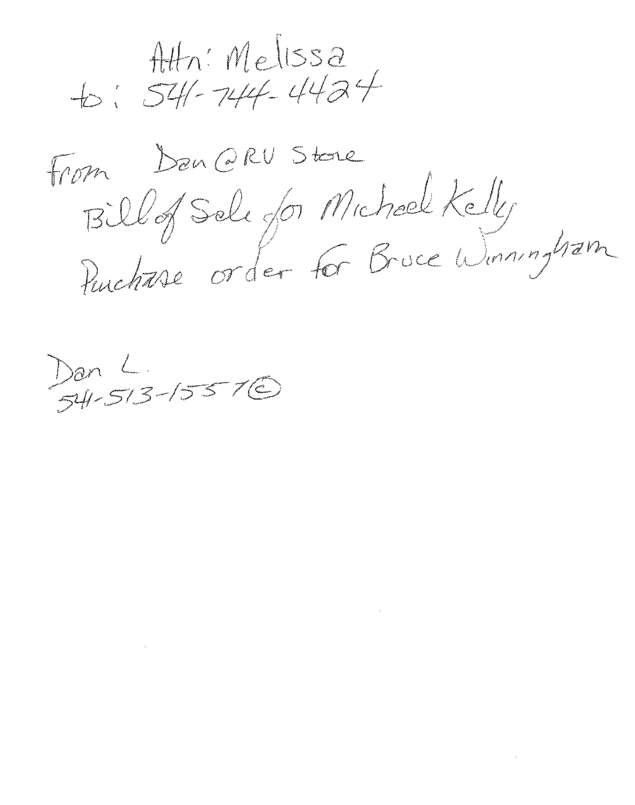 Attn: Melissa
to: 541-744-4424
From Dan @ RV Store
Bill of Sale for Michael Kelly
Purchase order for Bruce Winningham
Dan L.
541-513-1557 ©